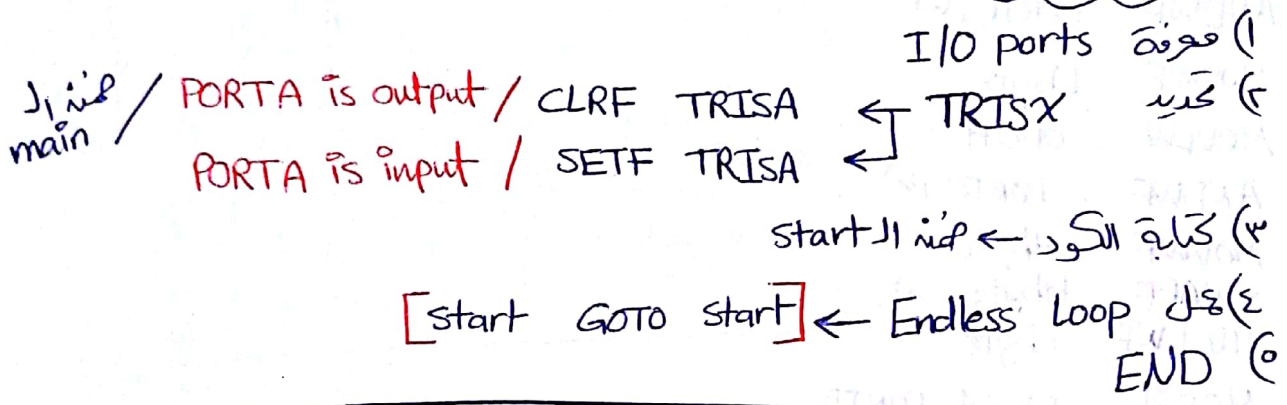 ١) معرفة I/O ports
٢) تحديد TRISX ← CLRF TRISA / PORTA is output / ضمن ال main
← SETF TRISA / PORTA is input
٣) كتابة الكود ← ضمن ال start
٤) عمل Endless Loop ← [start GOTO start]
٥) END